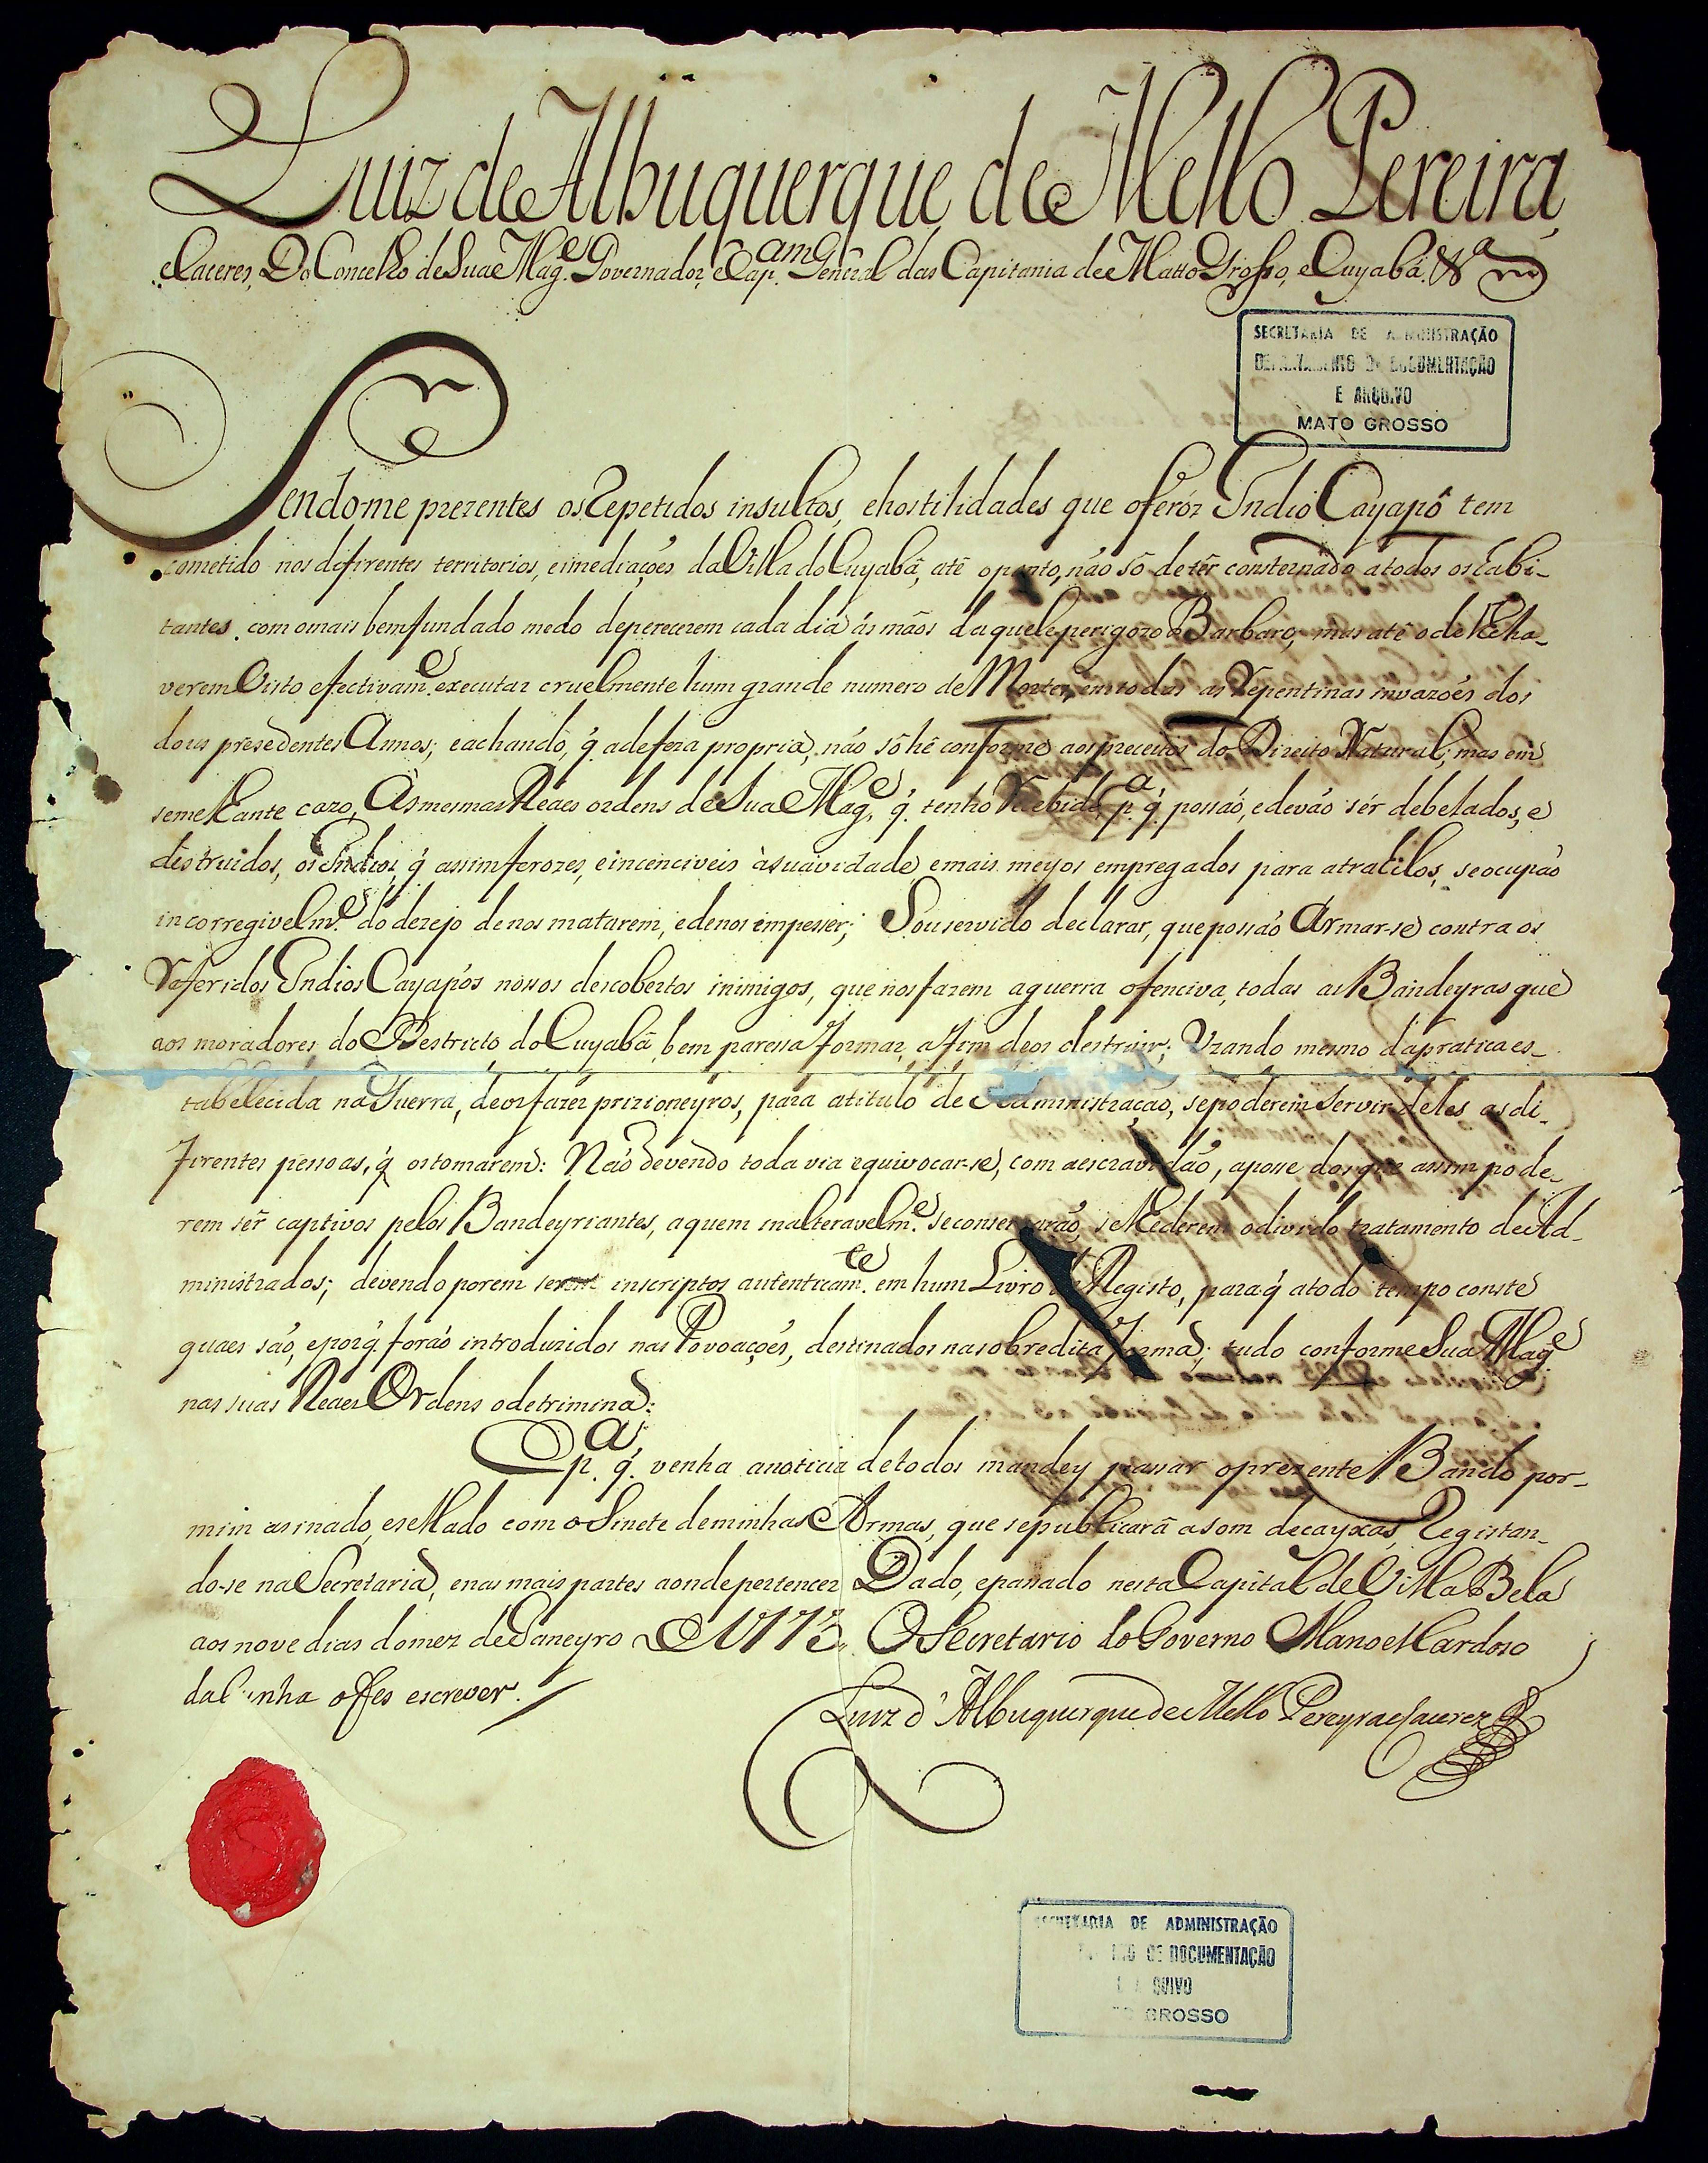 Luiz de Albuquerque de Mello Pereira,
e Caceres, Do Concelho de Sua Mag.e Governador, e Cap.am General das Capitania de Matto Grosso, e Cuyabá. &a
SECRETARIA DE ADMINISTRAÇÃO
DEPARTAMENTO DE DOCUMENTAÇÃO
E ARQUIVO
MATO GROSSO
Sendo-me prezentes os Repetidos insultos, e hostilidades que o feróz Indio Cayapó tem
cometido nos difirentes territorios, e imediações da Villa do Cuyabá, até o ponto, não só de têr consternado a todos os habi-
tantes, com o mais bem fundado medo de perecerem cada dia ás mãos daquele perigozo Barbaro, mas até o de lhe ha-
verem Visto efectivam.e executar cruelmente hum grande numero de Mortes, em todas as Repentinas invazoẽs dos
dous presedentes Annos; e achando, q̃ a defeza propria, não só hé conforme aos preceitos do Direito Natural; mas em
semelhante cazo, Ás mesmas Reaes ordens de Sua Mag.e, q̃ tenho Recebido, p.a q̃ possão, e devão sér debelados, e
destruidos, os Indios, q̃ assim ferozes, e incenciveis á suavidade, e mais meyos empregados para atrahilos, se ocupão
incorregivelm.e do dezejo de nos matarem, e de nos impesser; Sou servido declarar, que possão Armar-se contra os
Referidos Indios Cayapós nossos descobertos inimigos, que nos fazem a guerra ofenciva, todas as Bandeyras que
aos moradores do Destricto do Cuyabá, bem paressa formar, a fim de os destruir; Uzando mesmo da pratica es-
tabelecida na Guerra, de os fazer prizioneyros, para a titulo de Administração, se poderem Servir deles as di-
firentes pessoas, q̃ os tomarem: Não devendo toda via equivocar-se, com a escravidão, a posse dos que assim pode-
rem sêr captivos pelos Bandeyriantes, a quem inalteravelm.e se conservarão, se lhe derem o divido tratamento de Ad-
ministrados; devendo porem serem inscriptos autenticam.te em hum Livro de Registo, para q̃ a todo tempo conste
quaes são, e por q̃ forão introduzidos nas Povoações, destinados na sobredita forma; tudo conforme Sua Mag.e
nas suas Reaes Ordens o detrimina:
E p.a q̃ venha a noticia de todos mandey passar o prezente Bando por-
mim asinado, e sellado com o Sinete de minhas Armas, que se publicará a som de cayxas, Registan-
do-se na Secretaria, e nas mais partes aonde pertencer Dado, e passado nesta Capital de Villa Bela
aos nove dias do mez de Janeyro de 1773 O Secretario do Governo Manoel Cardoso
da Cunha o fes escrever.
Luiz d'Albuquerque de Mello Pereyra e Caceres
SECRETARIA DE ADMINISTRAÇÃO
DE DOCUMENTAÇÃO
QUIVO
GROSSO